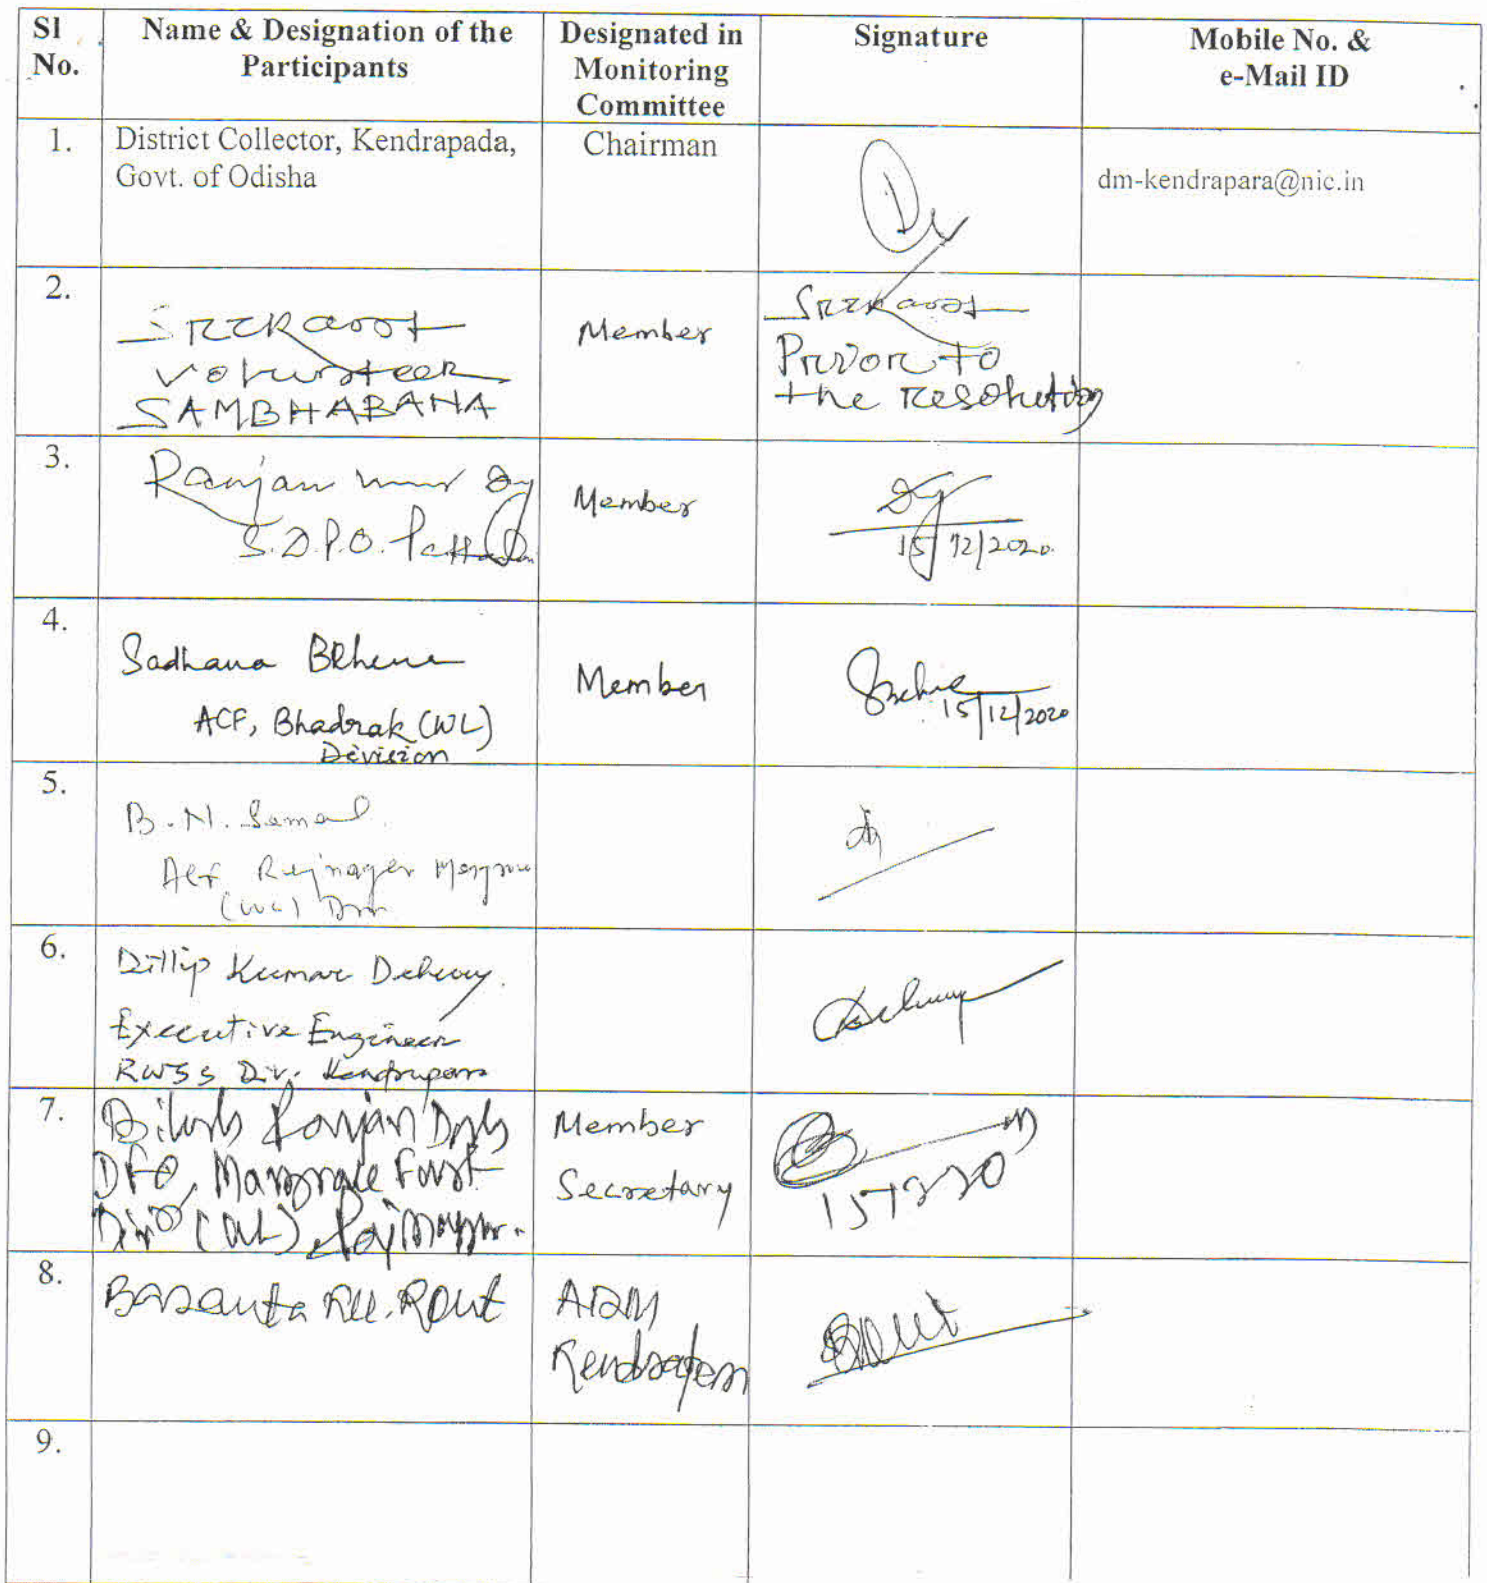 Sl No.
Name & Designation of the Participants
Designated in Monitoring Committee
Signature
Mobile No. & e-Mail ID
1.
District Collector, Kendrapada,
Govt. of Odisha
Chairman
dm-kendrapara@nic.in
2.
Volunteer
SAMBHABANA
Member
to
the resolution
3.
Ranjan
S.D.P.O.
Member
15/12/2020
4.
Sadhana Behera
ACF, Bhadrak (WL)
Division
Member
15/12/2020
5.
B.N. Samal
ACF Rajnagar
(WL) Divn
6.
Dillip Kumar
Executive Engineer
RWSS Div. Kendrapara
7.
Ranjan
DFO, Mangrove Forest
(WL), Rajnagar.
Member
Secretary
8.
Basanta Ku. Rout
ADM
Kendrapara
Rout
9.